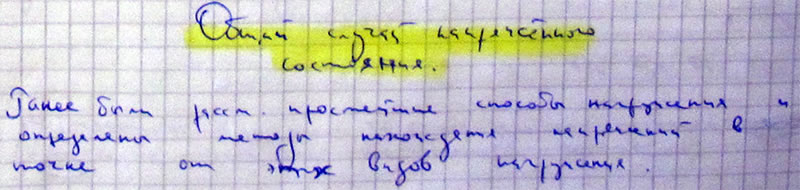 Общий случай напряжённого
состояния.
Ранее были расс. простейшие способы нагружения и
определены методы нахождения напряжений в
точке от этих видов нагружения.